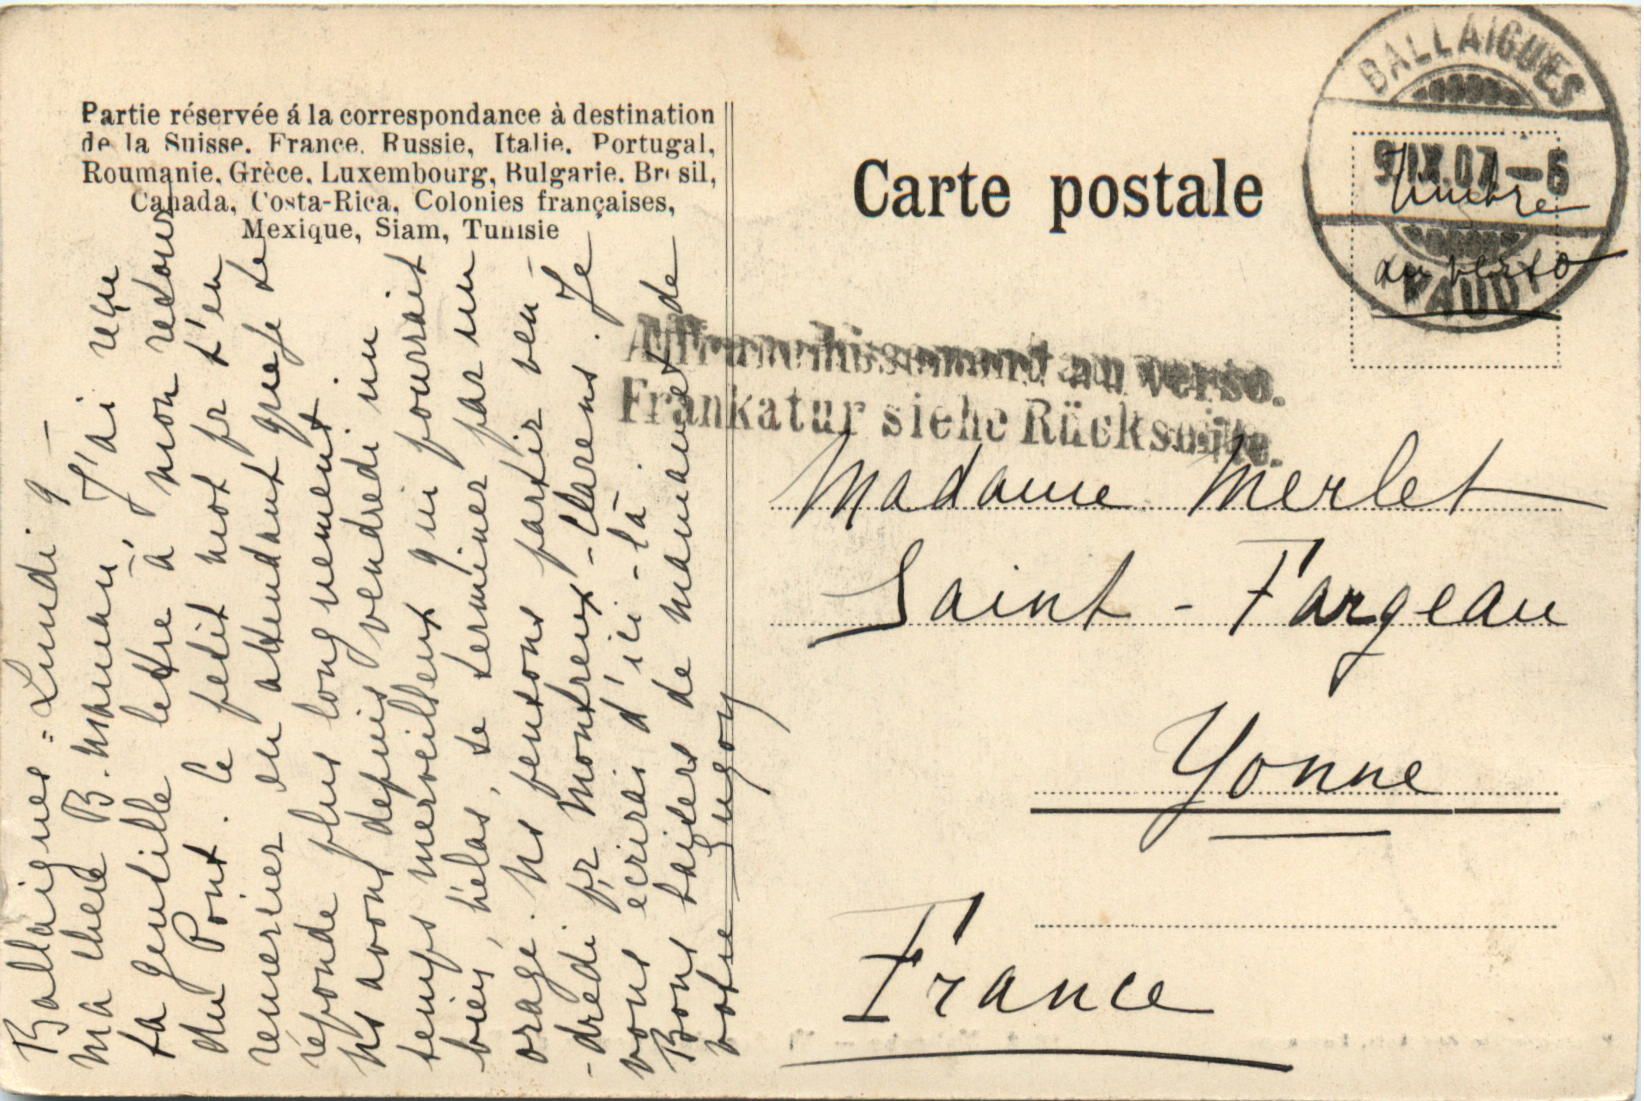 Partie réservée á la correspondance à destination
de la Suisse, France, Russie, Italie, Portugal,
Roumanie, Grèce, Luxembourg, Bulgarie, Brésil,
Canada, Costa-Rica, Colonies françaises,
Mexique, Siam, Tunisie
Carte postale
BALLAIGUES
9.IX.07.—6
VAUD
Timbre
au verso
Affranchissement au verso.
Frankatur siehe Rückseite.
Madame Merlet
Saint-Fargeau
Yonne
France
Ballaigues = Lundi 9 —
Ma chère B. maman, J'ai reçu
ta gentille lettre à mon retour
du Pont. Ce petit mot pr t'en
remercier en attendant que je te
réponde plus longuement.
Ns avons depuis vendredi un
temps merveilleux qui pourrait
bien, hélas, se terminer par un
orage. Ns pensons partir ven-
-dredi pr Montreux-Clarens. Je
vous écrirai d'ici-là
Bons baisers de maman et de
votre